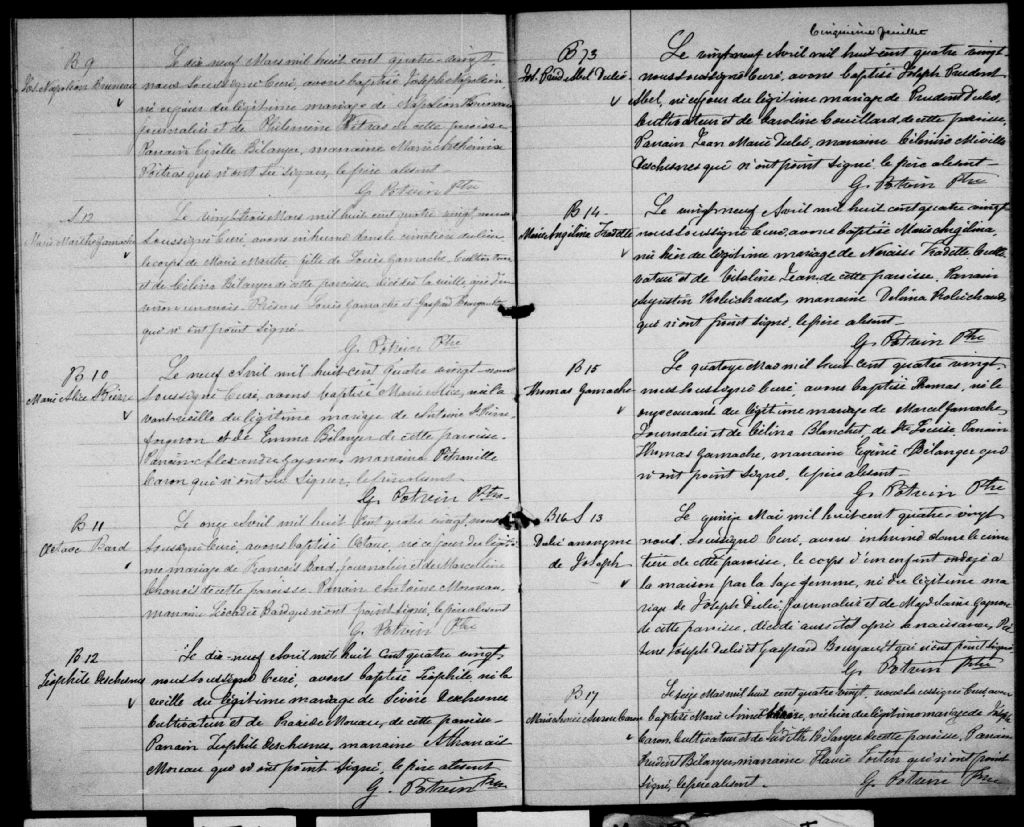 B 9
Jos. Napoléon Bruneau
Le dix neuf Mars mil huit cent quatre-vingt,
nous soussigné Curé, avons baptisé Joseph Napoléon
né ce jour du légitime mariage de Napoléon Bruneau
journalier et de Philomène Poitras de cette paroisse
Parrain Cyrille Bélanger, marraine Marie Arthémise
Poitras qui n'ont su signer, le père absent_
G. Potvin Ptre
S. 12
Marie Marthe Gamache
Le vingt trois Mars mil huit cent quatre vingt, nous
soussigné Curé, avons inhumé dans le cimetière du lieu
le corps de Marie Marthe fille de Louis Gamache, Cultivateur
et de Célina Bélanger de cette paroisse, décédée la veille
un mois. Présents Louis Gamache et Gaspard
qui n'ont point signé
G. Potvin Ptre
B 10
Marie Alice St Pierre
Le neuf Avril mil huit-cent quatre vingt nous
soussigné Curé, avons baptisé Marie Alice, née la
avant-veille du légitime mariage de Antoine St Pierre
forgeron et de Emma Bélanger de cette paroisse.
Parrain Alexandre Gagnon, marraine Pétronille
Caron qui n'ont su signer, le père absent.
G. Potvin Ptre
B 11
Octave Bard
Le onze Avril mil huit cent quatre vingt, nous
soussigné Curé, avons baptisé Octave, né ce jour du légiti
me mariage de François Bard, journalier et de Marcelline
de cette paroisse. Parrain Antoine Moreau,
marraine Léocadie Bard qui n'ont point signé, le père absent
G. Potvin Ptre
B 12
Téophile Deschesnes
Le dix-neuf Avril mil huit cent quatre vingt,
nous soussigné Curé, avons baptisé Téophile né la
veille du légitime mariage de Deschesnes
Cultivateur et de Praxède Moreau, de cette paroisse
Parrain Téophile Deschesnes, marraine Athanaïs
Moreau qui n'ont point signé, le père absent
G. Potvin Ptre
Cinquième feuillet
B 13
Jos. Prud. Abel Dubé
Le vingt neuf Avril mil huit cent quatre vingt
nous soussigné Curé, avons baptisé Joseph Prudent
Abel, né ce jour du légitime mariage de Prudent Dubé,
Cultivateur et de Caroline Couillard, de cette paroisse,
Parrain Jean Marie Dubé, marraine Célénire Miville
Deschesnes qui n'ont point signé, le père absent_
G. Potvin Ptre
B 14
Marie Angélina Fradette
Le vingt neuf Avril mil huit cent quatre vingt
nous soussigné Curé, avons baptisé Marie Angélina,
née hier du légitime mariage de Narcisse Fradette Culti
vateur et de Vitaline Jean, de cette paroisse, Parrain
Augustin Robichaud, marraine Delima Robichaud,
qui n'ont point signé, le père absent_
G. Potvin Ptre
B 15
Thomas Gamache
Le quatorze Mai mil huit cent quatre vingt
nous soussigné Curé avons baptisé Thomas, né le
onze courant du légitime mariage de Marcel Gamache
Journalier et de Célina Blanchet de St Louise, Parrain
Thomas Gamache, marraine Bélanger qui
n'ont point signé, le père absent_
G. Potvin Ptre
B 16 S 13
Dubé anonyme
de Joseph
Le quinze Mai mil huit cent quatre vingt
nous, soussigné Curé, avons inhumé dans le cime
tière de cette paroisse, le corps d'un enfant ondoyé à
la maison par la sage femme, né du légitime ma
riage de Joseph Dubé, journalier et de Magdelaine Gagnon
de cette paroisse, décédé aussitôt après la naissance, Pré
sents, Joseph Dubé et Gaspard Bourgault qui n'ont point signé
G. Potvin Ptre
B 17
Caron
Le seize Mai mil huit cent quatre vingt, nous soussigné Curé, avons
baptisé Marie née hier du légitime mariage de
Caron, Cultivateur et de Judith Bélanger de cette paroisse, Parrain
Prudent Bélanger, marraine Flavie Fortin qui n'ont point
signé, le père absent.
G. Potvin Ptre